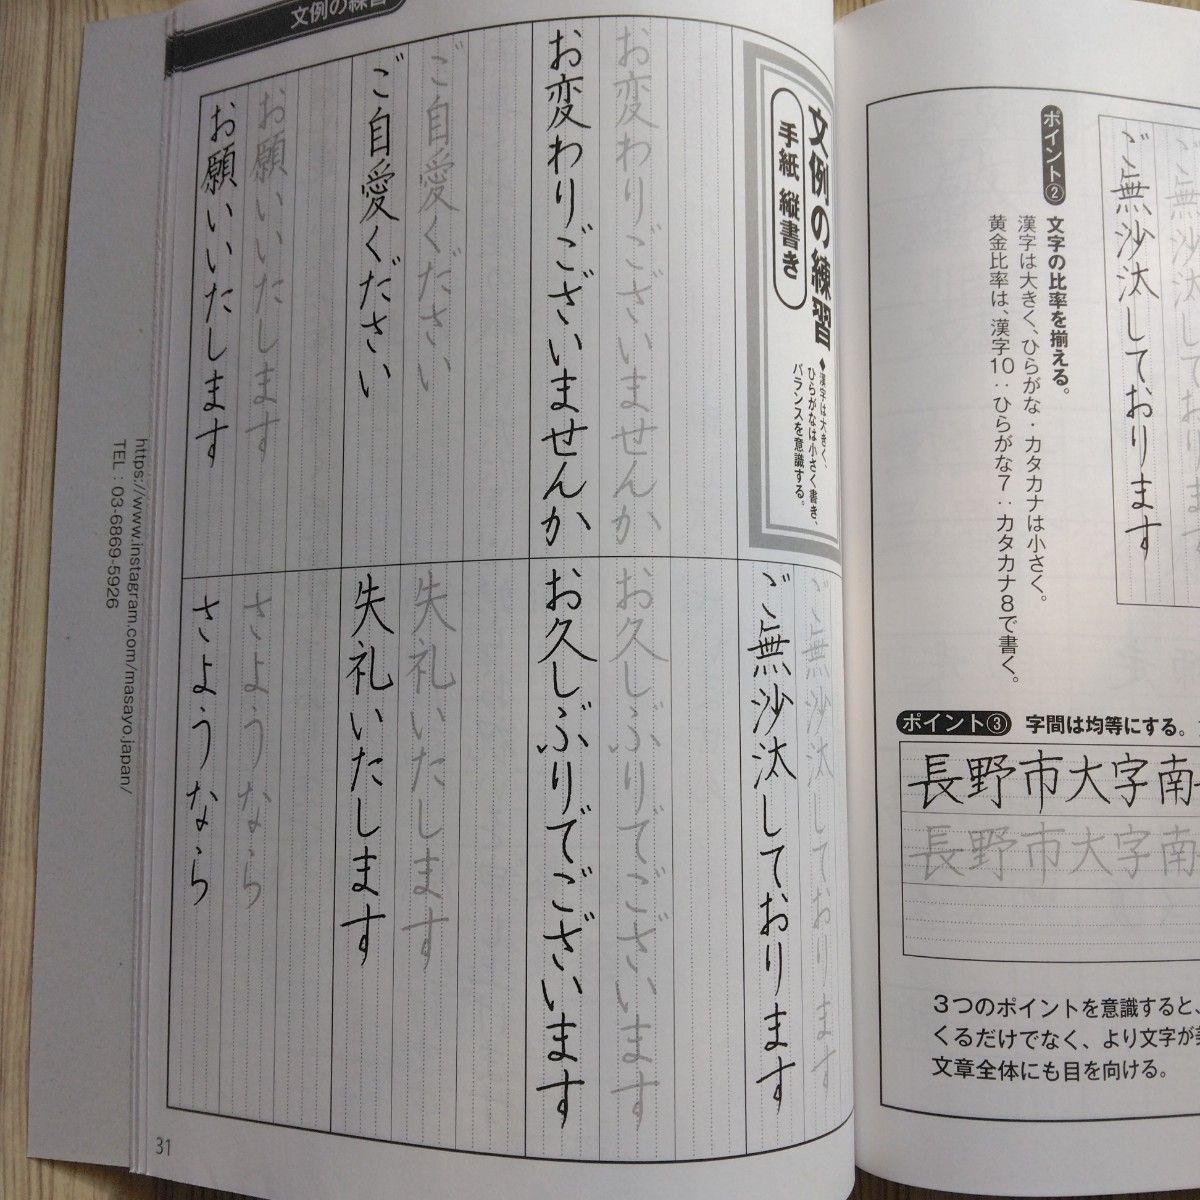 ご無沙汰しております
ご無沙汰しております
ポイント② 文字の比率を揃える。
漢字は大きく、ひらがな・カタカナは小さく。
黄金比率は、漢字10：ひらがな7：カタカナ8で書く。
ポイント③ 字間は均等にする。
長野市大字南
長野市大字南
3つのポイントを意識すると、
くるだけでなく、より文字が
文章全体にも目を向ける。
文例の練習
文例の練習
手紙 縦書き
◆漢字は大きく、
ひらがなは小さく書き、
バランスを意識する。
ご無沙汰しております
ご無沙汰しております
お変わりございませんか
お変わりございませんか
お久しぶりでございます
お久しぶりでございます
ご自愛ください
ご自愛ください
失礼いたします
失礼いたします
お願いいたします
お願いいたします
さようなら
さようなら
31
https://www.instagram.com/masayo.japan/
TEL：03-6869-5926